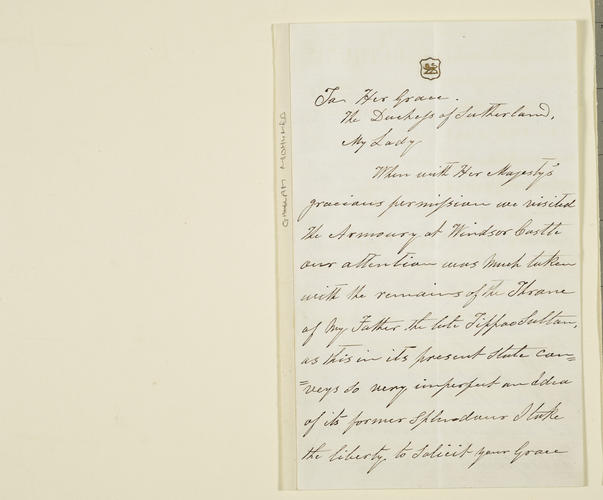 To Her Grace.
The Duchess of Sutherland,
My Lady
When with Her Majesty's
gracious permission we visited
the Armoury at Windsor Castle
our attention was much taken
with the remains of the Throne
of My Father the late Tippoo Sultan,
as this in its present state con=
=veys so very imperfect an Idea
of its former Splendour I take
the liberty to Solicit your Grace
GHOLAM MOHUMED